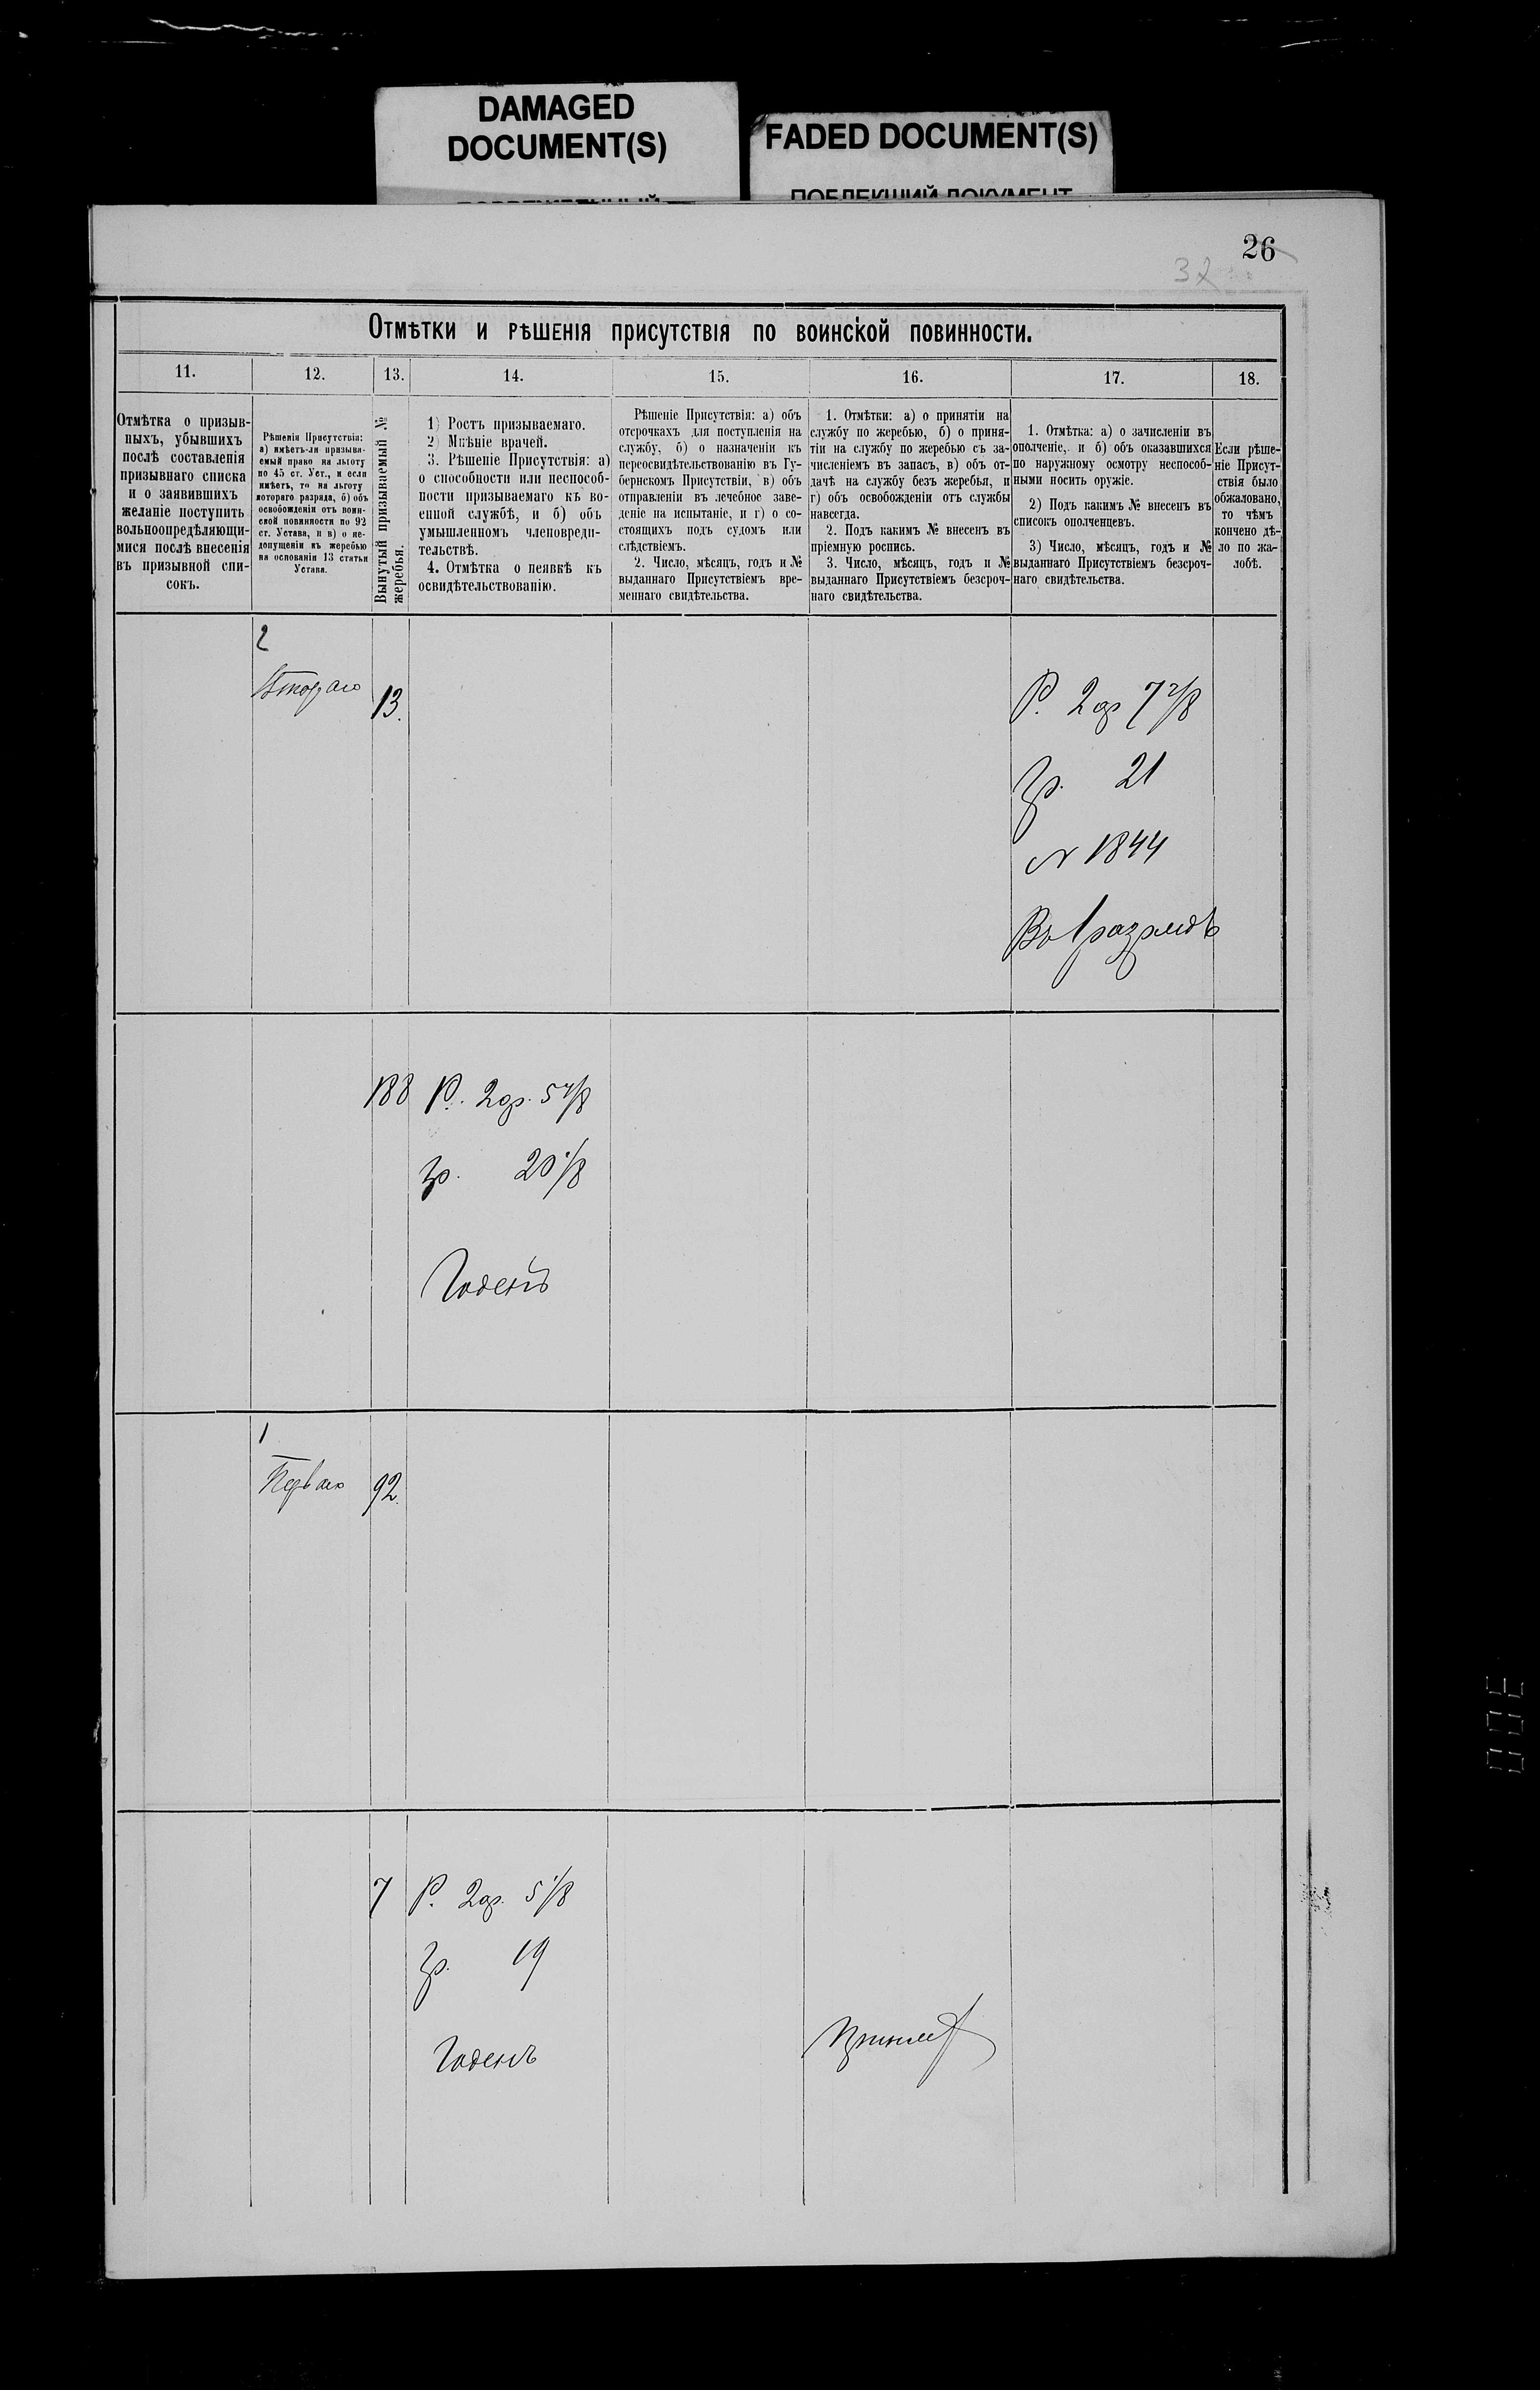 DAMAGED
DOCUMENT(S)
FADED DOCUMENT(S)
ПОБЛЕКШИЙ ДОКУМЕНТ
26
32
Отмѣтки и рѣшенія присутствія по воинской повинности.
11.
12.
13.
14.
15.
16.
17.
18.
Отмѣтка о призыв-
ныхъ, убывшихъ
послѣ составленія
призывнаго списка
и о заявившихъ
желаніе поступить
вольноопредѣляющи-
мися послѣ внесенія
въ призывной спи-
сокъ.
Рѣшенія Присутствія:
а) имѣетъ-ли призыва-
емый право на льготу
по 45 ст. Уст., и если
имѣетъ, то на льготу
котораго разряда, б) объ
освобожденіи отъ воин-
ской повинности по 92
ст. Устава, и в) о не-
допущеніи къ жеребью
на основаніи 13 статьи
Устава.
Вынутый призываемый №
жеребья.
1) Ростъ призываемаго.
2) Мнѣніе врачей.
3. Рѣшеніе Присутствія: а)
о способности или неспособ-
ности призываемаго къ во-
енной службѣ, и б) объ
умышленномъ членовреди-
тельствѣ.
4. Отмѣтка о неявкѣ къ
освидѣтельствованію.
Рѣшеніе Присутствія: а) объ
отсрочкахъ для поступленія на
службу, б) о назначеніи къ
переосвидѣтельствованію въ Гу-
бернскомъ Присутствіи, в) объ
отправленіи въ лечебное заве-
деніе на испытаніе, и г) о со-
стоящихъ подъ судомъ или
слѣдствіемъ.
2. Число, мѣсяцъ, годъ и №
выданнаго Присутствіемъ вре-
меннаго свидѣтельства.
1. Отмѣтки: а) о принятіи на
службу по жеребью, б) о приня-
тіи на службу по жеребью съ за-
численіемъ въ запасъ, в) объ от-
дачѣ на службу безъ жеребья, и
г) объ освобожденіи отъ службы
навсегда.
2. Подъ какимъ № внесенъ въ
пріемную роспись.
3. Число, мѣсяцъ, годъ и №
выданнаго Присутствіемъ безсроч-
наго свидѣтельства.
1. Отмѣтка: а) о зачисленіи въ
ополченіе, и б) объ оказавшихся
по наружному осмотру неспособ-
ными носить оружіе.
2) Подъ какимъ № внесенъ въ
списокъ ополченцевъ.
3) Число, мѣсяцъ, годъ и №
выданнаго Присутствіемъ безсроч-
наго свидѣтельства.
Если рѣше-
ніе Присут-
ствія было
обжаловано,
то чѣмъ
кончено дѣ-
ло по жа-
лобѣ.
2
Втораго
13.
Р. 2 ар 7 2/8
гр. 21
N 1844
Въ 1 разрядъ
188
Р. 2 ар. 5 4/8
гр. 20 1/8
Годенъ
1
Перваго
92.
7
Р. 2 ар. 5 1/8
гр. 19
Годенъ
Принятъ
300